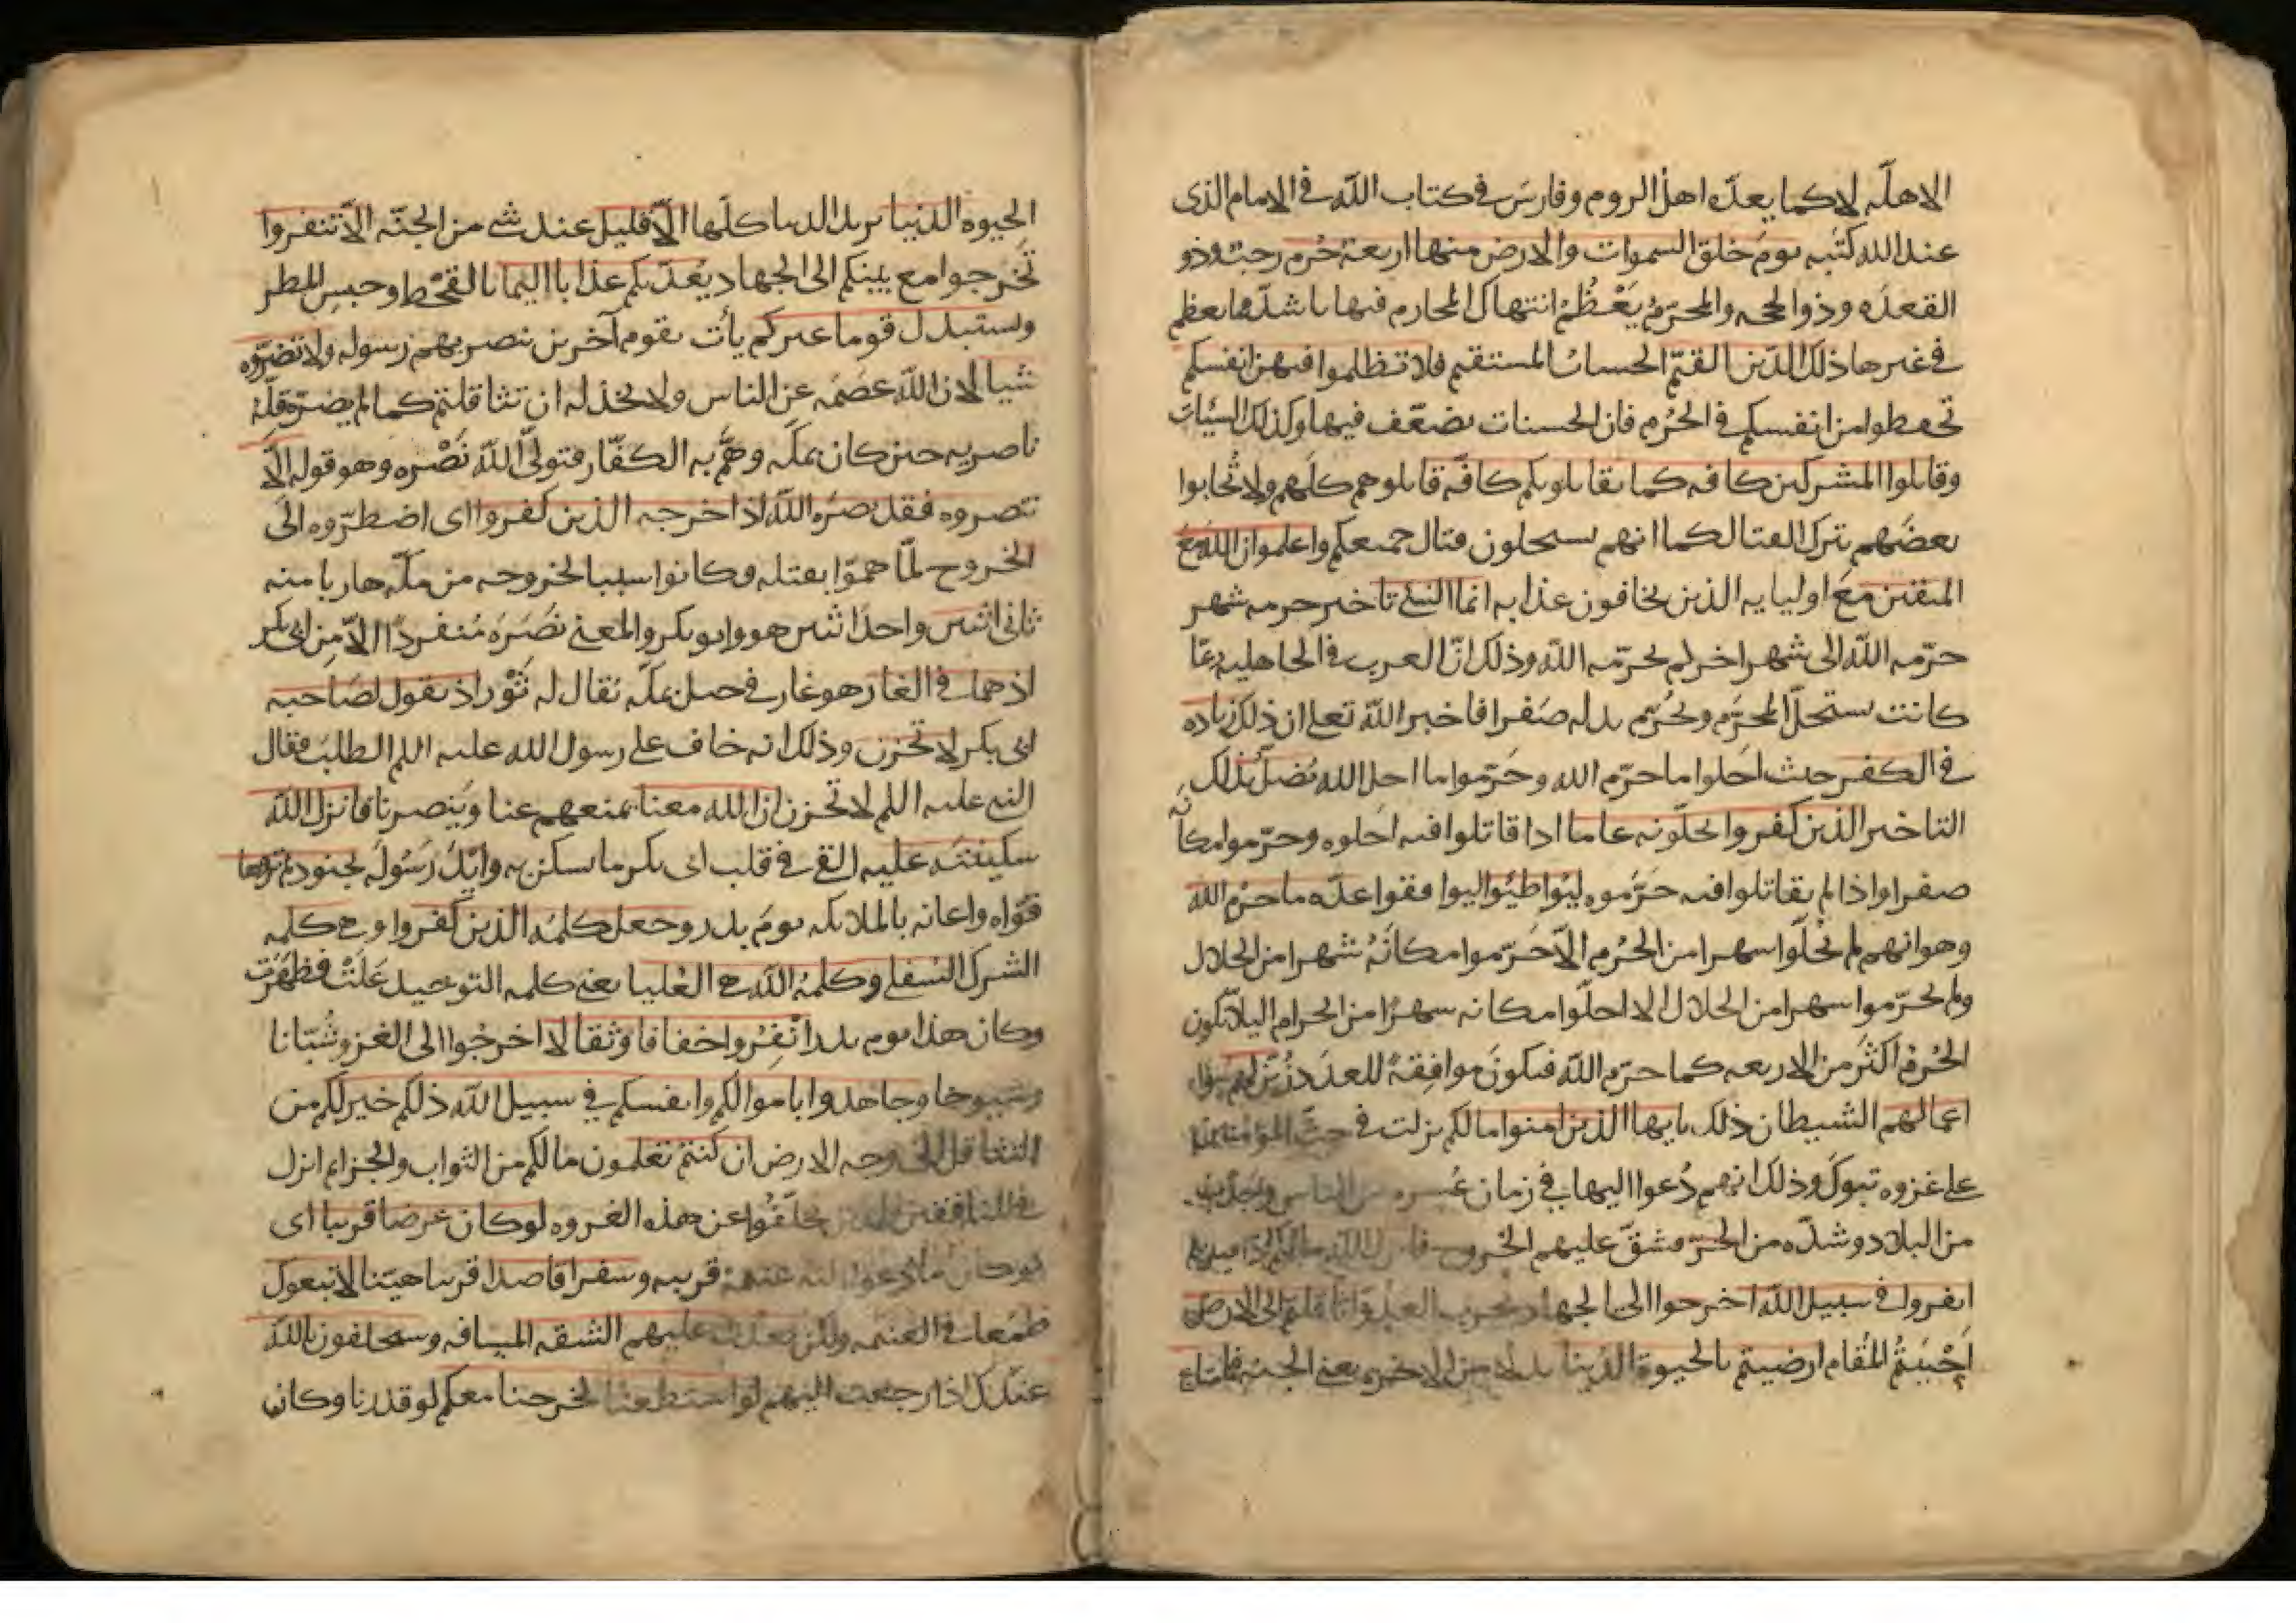 الاهلّه لا كما يعدّه اهل الروم وفارسَ في كتاب اللّه في الامام الذى
عند الله كتَبه يومَ خلق السموات والارض منها اربعة حُرم رجبٌ وذو
القعدَه وذوا لحجه والمحرّمُ يَعْظُمُ انتهاك المحارم فيها باشدّ مما يعظم
في غيرها ذلك الدّين القيّم الحسابُ المستقيم فلا تظلموا فيهن انفسكم
تحفظوا من انفسكم في الحُرم فان الحسنات تضعّف فيها وكذلك السيّات
وقاتلوا المشركين كافه كما يقاتلوبكم كافّه قاتلوهم كلّهم ولا تُحابوا
بعضَهم بترك القتال كما انهم يستحلون قتال جميعكم واعلموا ان اللّه مَعَ
المتقين مَعَ اوليايه الذين يخافون عذابه انما النسئ تاخير حرمه شهر
حرّمه اللّه الى شهر اخر لم يحرّمه اللّه وذلك انّ العرب في الجاهليه ربّما
كانت تستحلّ المحرَّم وتحُرّم بدله صَفرا فاخبر اللّه تعلى ان ذلك زياده
في الكفر حيث احَلوا ما حرّم الله وحَرّموا ما احل الله يُضلّ بذلك
التاخير الذين كفروا يحلّونه عاما اذا قاتلوا فيه احَلوه وحرّموا مكانَه
صفرا واذا لم يقاتلوا فيه حَرَّموه ليُواطئوا ليوافقوا عدّه ما حرّم الله
وهو انهم لم يُحلّوا شهرا من الحُرم الّا حَرّموا مكانَهُ شهرا من الحلال
ولم يحرّموا شهرا من الحلال الا احلّوا مكانه شهرًا من الحرام ليلا يكون
الحُرمُ اكثَر من الاربعه كما حرّم اللّه فيكونَ موافقةً للعدَد زُيّنَ لهم سؤ
اعمالهم الشيطان ذلك يايها الذين امنوا ما لكم نزلت في حثّ المؤمنين
على غزوه تبوك وذلك انهم دُعوا اليها في زمان عُسره من الناس وجَدْب
من البلاد وشدّه من الحَرّ فشقّ عليهم الخروج فانزل اللّه ما لكم اذا قيل لكم
انفروا في سبيل اللّه اخرجوا الى الجهاد لحرب العدوّ اثّاقلتم الى الارض
اَحْبَبتُمُ المُقام ارضيتم بالحيوة الدّنيا بدلا من الاخره يعنى الجنه فما متاع
الحيوه الدنيا يريد الدنيا كلّها الّا قليل عند شى من الجنّه الّا تنفروا
تَخرجوا مع نبيكم الى الجهاد يُعذّبكم عذابا اليما بالقحْط وحبس المطر
ويستبدل قوما غيركم يأت بقوم آخرين ينصر بهم رسوله ولا تضرّوه
شيا لان اللّه عصَمَه عن الناس ولا يخذله ان تثاقلتم كما لم يضرّه قلّهُ
ناصريه حين كان بمكه وهَمَّ به الكفّار فتولّى اللّه نَصْره وهو قوله الّا
تنصروه فقد نصرَه اللّه اذ اخرجه الذين كفروا اى اضطرّوه الى
الخروج لمّا همّوا بقتله وكانوا سببا لخروجه من مكّه هاربا منه
ثانى اثنين واحدَ اثنين هو وابو بكر والمعنى نَصَرَهُ مُنفردًا الّا مِن ابى بكر
اذ هما في الغار هو غار في جبل بمكّه يقال له ثَوْر اذ يقول لصَاحبه
ابى بكر لا تحزن وذلك انه خاف على رسول الله عليه اللم الطلبَ فقال
النبى عليه اللم لا تحزن ان الله معنا يمنعهم عنا وينصرنا فانزل اللّه
سكينتَه عليه القى في قلب ابى بكر ما سكن به وايّدَ رَسُولَه بجنود لم تروها
قوّاه واعانه بالملايكه يومَ بدر وجعل كلمة الذين كفروا وهى كلمه
الشرك السفلى وكلمةُ اللّه هى العُليا يعنى كلمه التوحيد عَلَتْ وظَهَرَت
وكان هذا يوم بدر انْفِرُوا خفافا وثقالا اخرجُوا الى الغزو شُبّانا
وشيوخا وجاهدوا باموالكم وانفسكم في سبيل اللّه ذلكم خير لكم من
التثاقل الى وجه الارض ان كنتم تعلمون ما لكم من الثواب والجزاء ثم انزل
في المنافقين الذين تخلّفُوا عن هذه الغروه لو كان عرضا قريبا اى
لو كان ما تدعوا اليه غنيمة قريبه وسفرا قاصدا قريبا هيّنا لاتبعوك
طمعا في الغنيمه ولكن بعدت عليهم الشقه المسافه وسيحلفون باللّه
عندك اذا رجعت اليهم لو استطعنا لخرجنا معكم لو قدرنا وكان